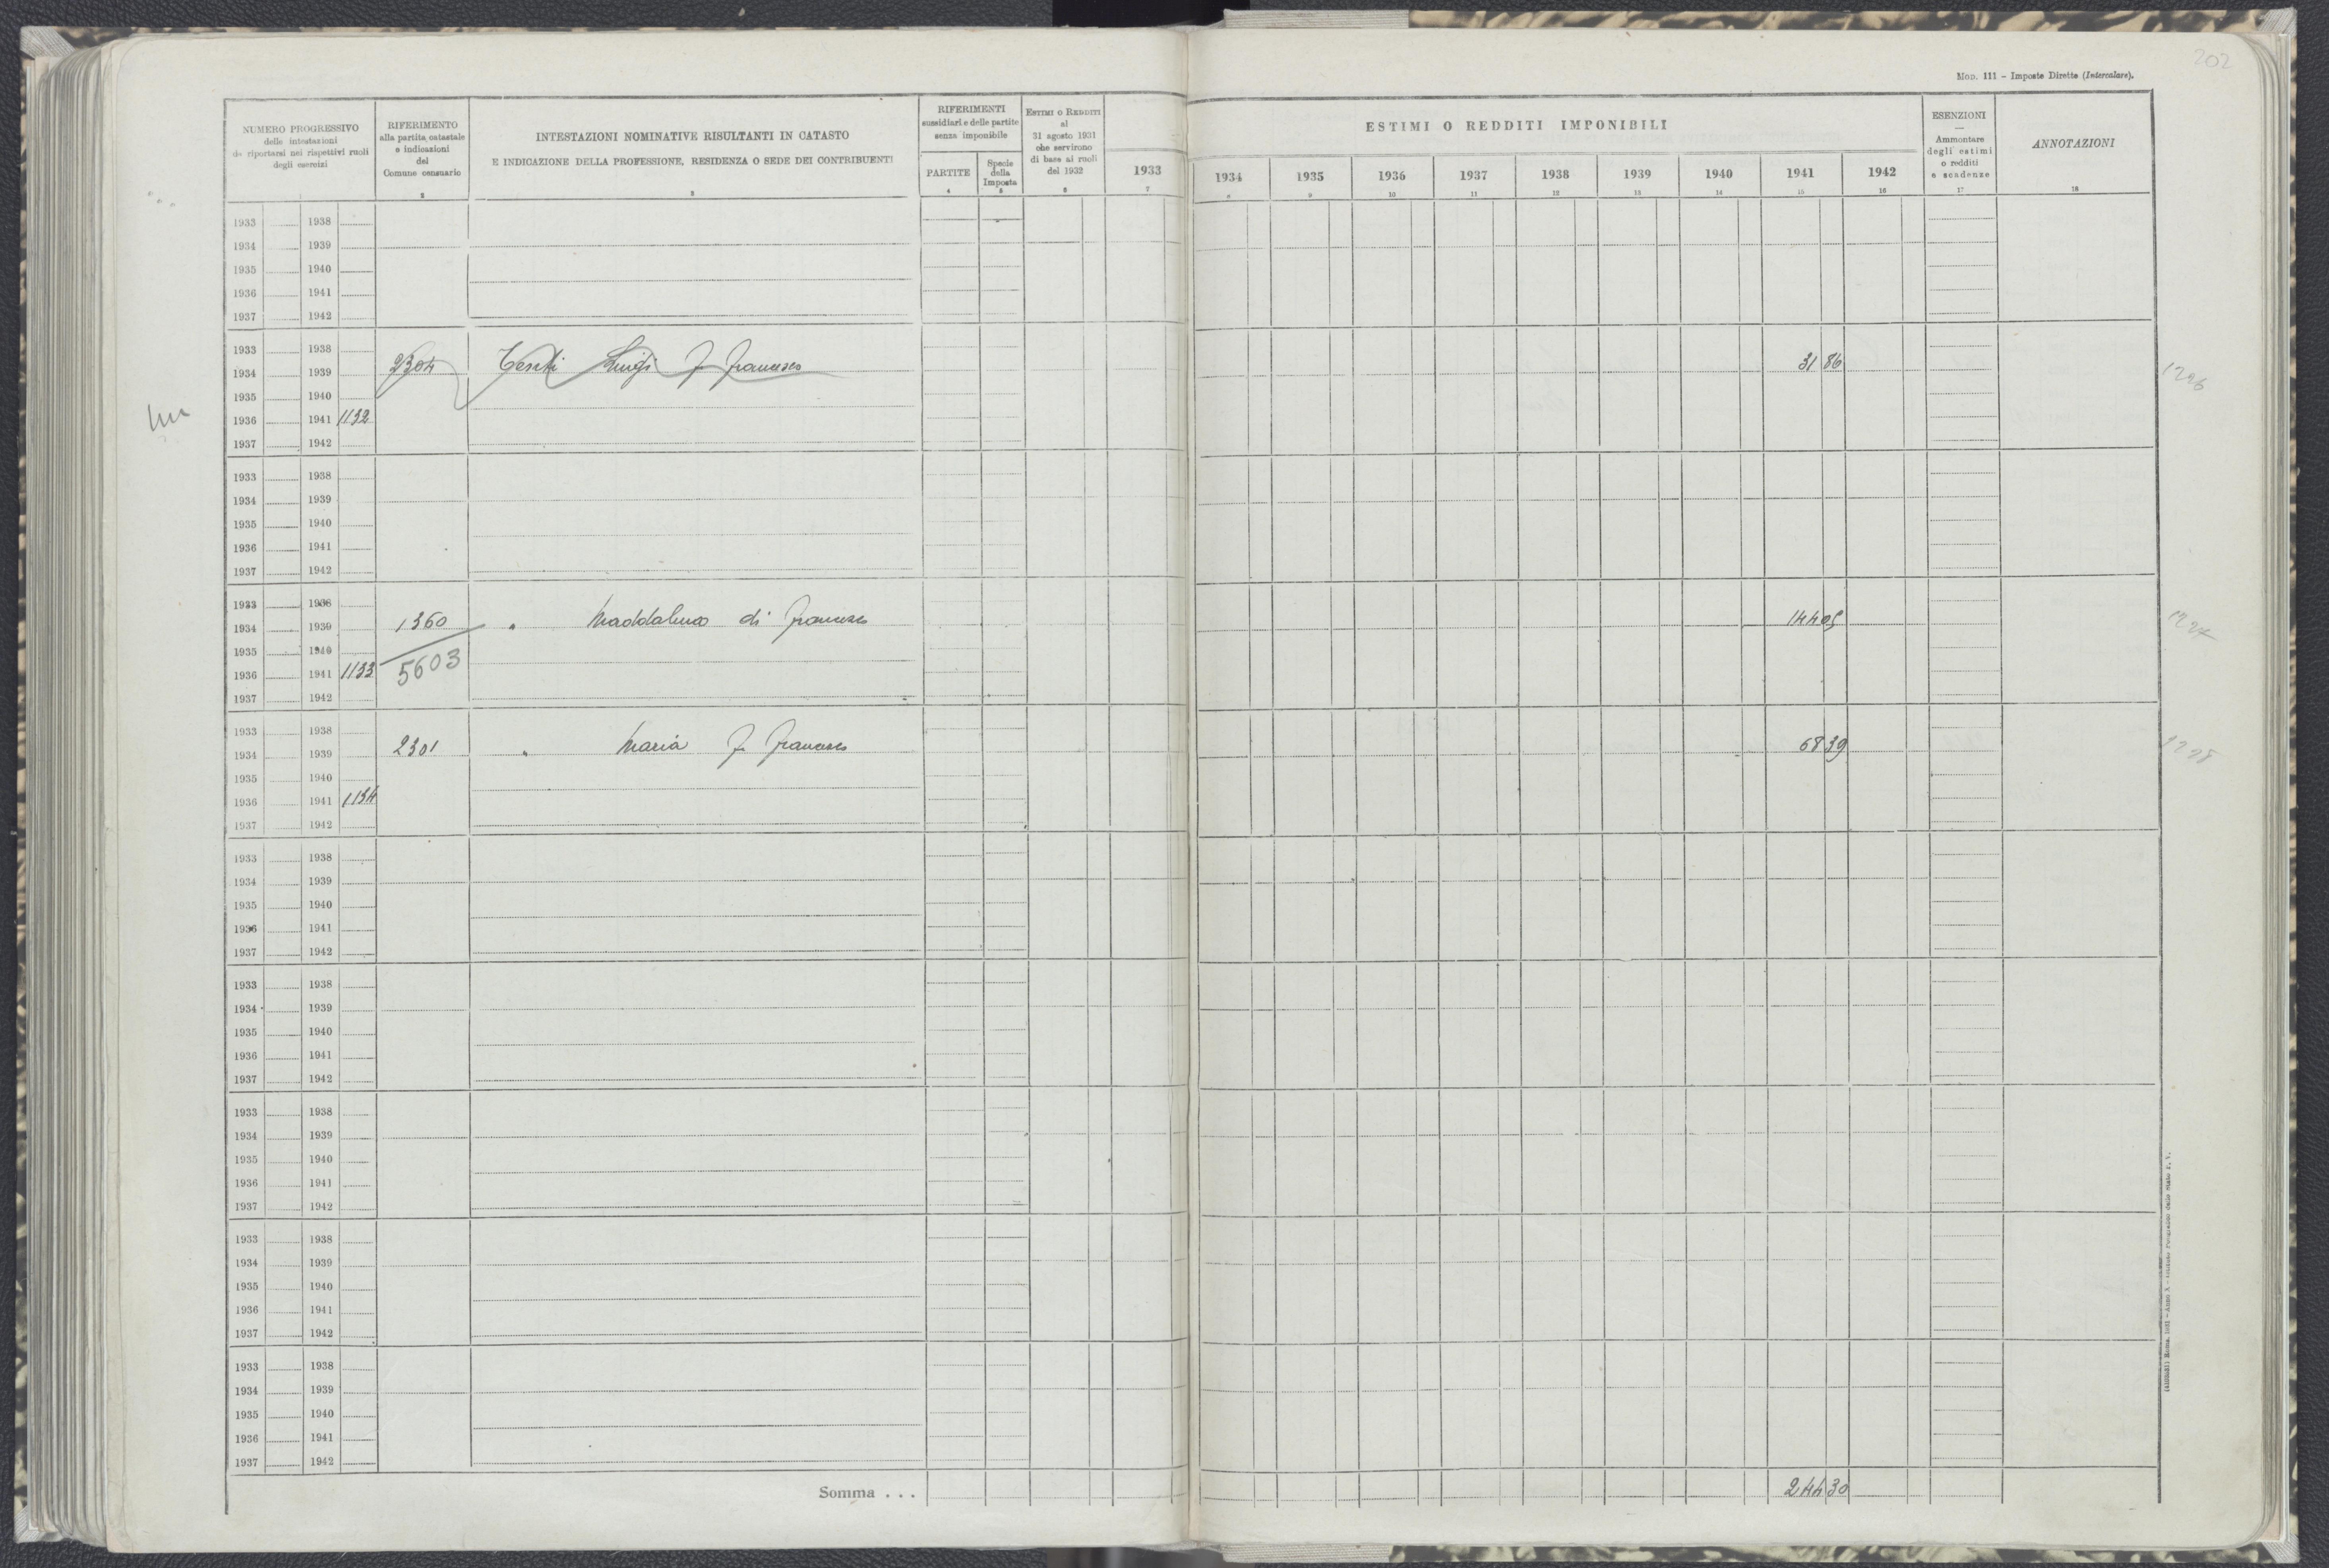 202
MOD. 111 - Imposte Dirette (Intercalare).
NUMERO PROGRESSIVO
delle intestazioni
da riportarsi nei rispettivi ruoli
degli esercizi
RIFERIMENTO
alla partita catastale
e indicazioni
del
Comune censuario
2
INTESTAZIONI NOMINATIVE RISULTANTI IN CATASTO
E INDICAZIONE DELLA PROFESSIONE, RESIDENZA O SEDE DEI CONTRIBUENTI
3
RIFERIMENTI
sussidiari e delle partite
senza imponibile
PARTITE
4
Specie
della
Imposta
5
ESTIMI O REDDITI
al
31 agosto 1931
che servirono
di base ai ruoli
del 1932
6
1933
7
ESTIMI O REDDITI IMPONIBILI
1934 1935 1936 1937 1938 1939 1940 1941 1942
9 10 11 12 13 14 15 16
ESENZIONI
—
Ammontare
degli estimi
o redditi
e scadenze
17
ANNOTAZIONI
18
1933 1938
1934 1939
1935 1940
1936 1941
1937 1942
1933 1938
1934 1939 2304 Testi Luigi f Francesco 31 86 1296
1935 1940
1936 1941 1132
1937 1942
1933 1938
1934 1939
1935 1940
1936 1941
1937 1942
1933 1938
1934 1939 1360 " Maddalena di Francesco 144 05 1297
1935 1940
1936 1941 1133 5603
1937 1942
1933 1938
1934 1939 2301 " Maria f Francesco 68 39
1935 1940
1936 1941 1134
1937 1942
1933 1938
1934 1939
1935 1940
1936 1941
1937 1942
1933 1938
1934 1939
1935 1940
1936 1941
1937 1942
1933 1938
1934 1939
1935 1940
1936 1941
1937 1942
1933 1938
1934 1939
1935 1940
1936 1941
1937 1942
1933 1938
1934 1939
1935 1940
1936 1941
1937 1942
Somma . . . 244 30